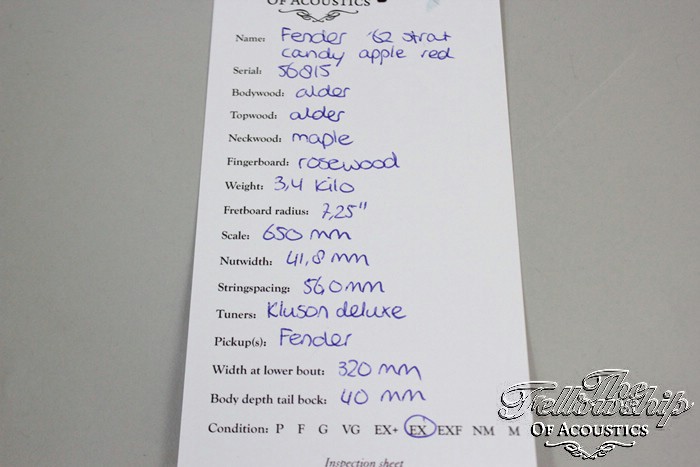 OF ACOUSTICS
Name: Fender '62 strat
candy apple red
Serial: 56815
Bodywood: alder
Topwood: alder
Neckwood: maple
Fingerboard: rosewood
Weight: 3,4 kilo
Fretboard radius: 7,25"
Scale: 650 mm
Nutwidth: 41,8 mm
Stringspacing: 56,0mm
Tuners: Kluson deluxe
Pickup(s): Fender
Width at lower bout: 320 mm
Body depth tail bock: 40 mm
Condition: P F G VG EX+ EX EXF NM M
Inspection sheet
The
Fellowship
OF ACOUSTICS